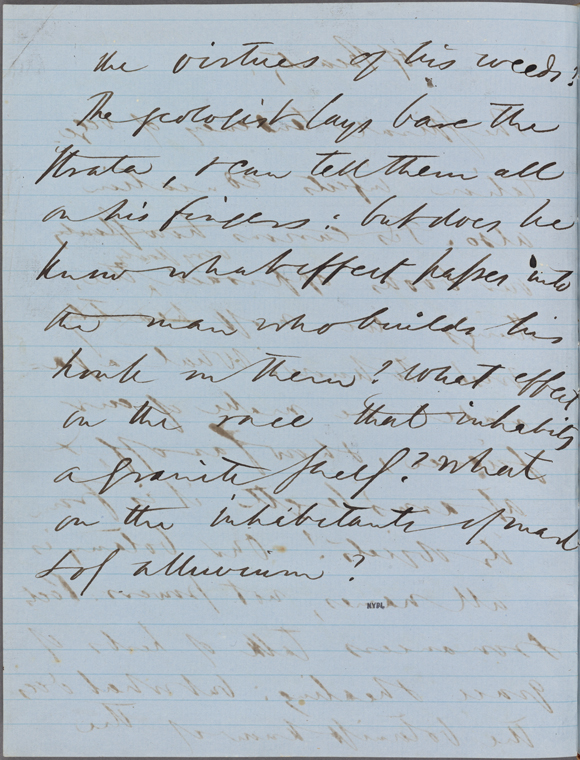 the virtues of his weeds?
The geologist lays bare the
strata, & can tell them all
on his fingers: but does he
know what effect passes into
the man who builds his
house on them? What effect
on the race that inhabits
a granite shelf? What
on the inhabitants of marl
& of alluvium?
NYPL